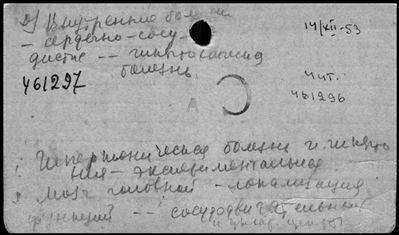 2) Внутренние болезни
- сердечно-сосу-
дистые -- гипертоническая
болезнь
461297
14/XII-53
Чит.
461296
А
Гипертоническая болезнь и гиперто
ния - экспериментальная
мозг головной - локализация
функций -- сосудодвигательный
и